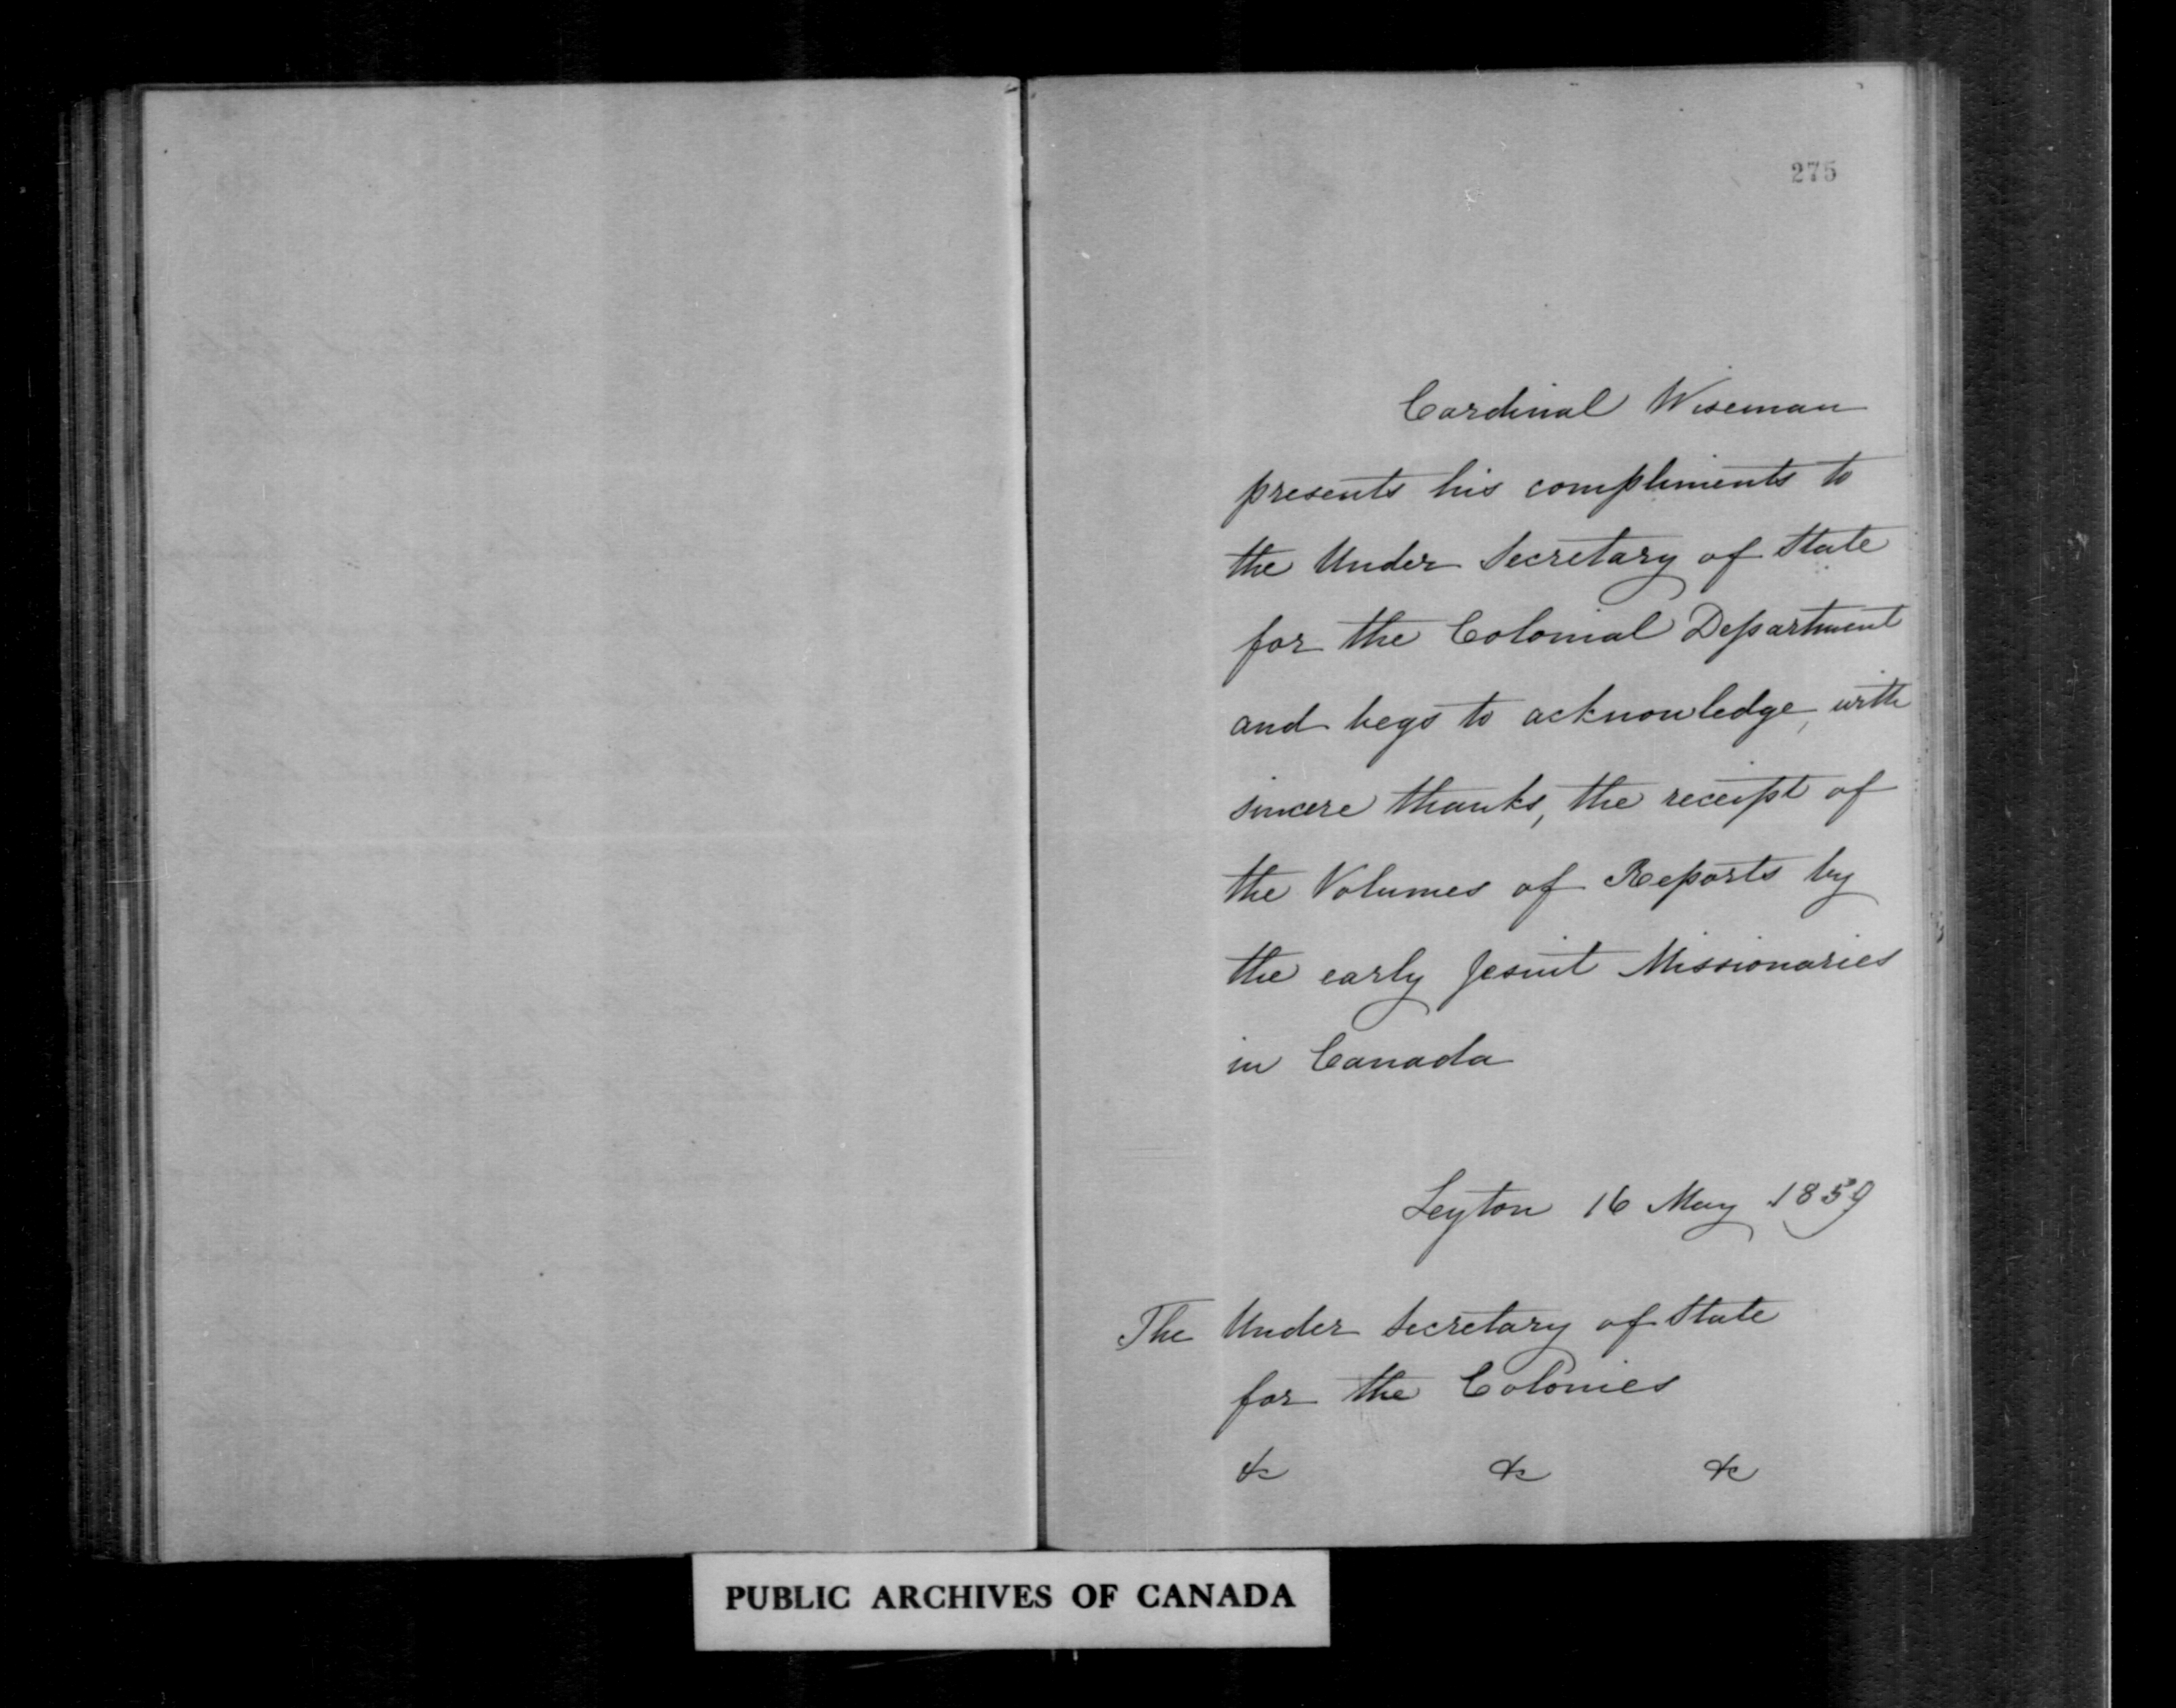 275
Cardinal Wiseman
presents his compliments to
the Under Secretary of State
for the Colonial Department
and begs to acknowledge, with
sincere thanks, the receipt of
the Volumes of Reports by
the early Jesuit Missionaries
in Canada
Leyton 16 May 1859
The Under Secretary of State
for the Colonies
&c &c &c
PUBLIC ARCHIVES OF CANADA